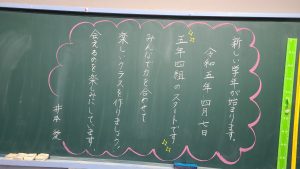 新しい学年が始まります。
令和五年 四月七日
五年四組のスタートです
みんなで力を合わせて
楽しいクラスを作りましょう。
会えるのを楽しみにしています。